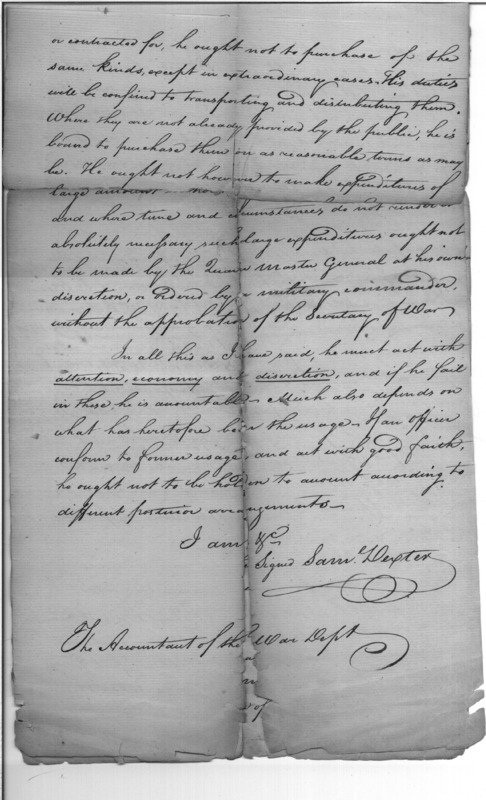 or contracted for, he ought not to purchase of the
same kinds, except in extraordinary cases. His duties
will be confined to transporting and distributing them.
Where they are not already provided by the public, he is
bound to purchase them on as reasonable terms as may
be. He ought not however to make expenditures of
large amount
and where time and circumstances do not render it
absolutely necessary such large expenditures ought not
to be made by the Quarter Master General at his own
discretion, or ordered by a military commander,
without the approbation of the Secretary of War
In all this as I have said, he must act with
attention, economy and discretion, and if he fail
in these, he is accountable. Much also depends on
what has heretofore been the usage. If an officer
conform to former usage and act with good faith,
he ought not to be holden to account according to
different posterior arrangements
I am &c
Signed Saml. Dexter
The Accountant of the War Dept
of